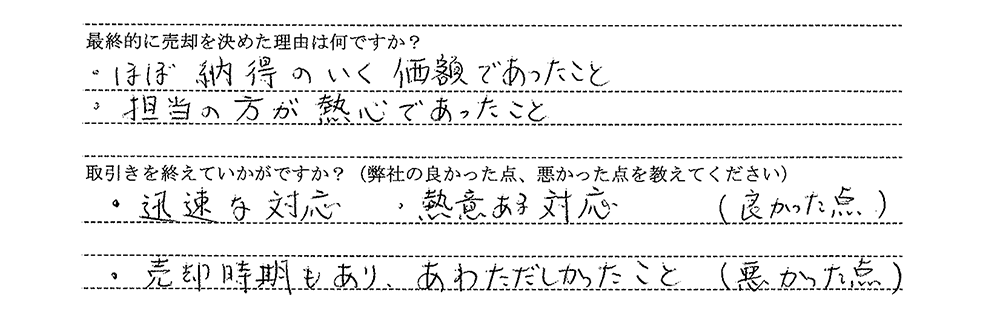 最終的に売却を決めた理由は何ですか？
・ほぼ納得のいく価額であったこと
・担当の方が熱心であったこと
取引きを終えていかがですか？（弊社の良かった点、悪かった点を教えてください）
・迅速な対応 ・熱意ある対応 （良かった点）
・売却時期もあり、あわただしかったこと （悪かった点）